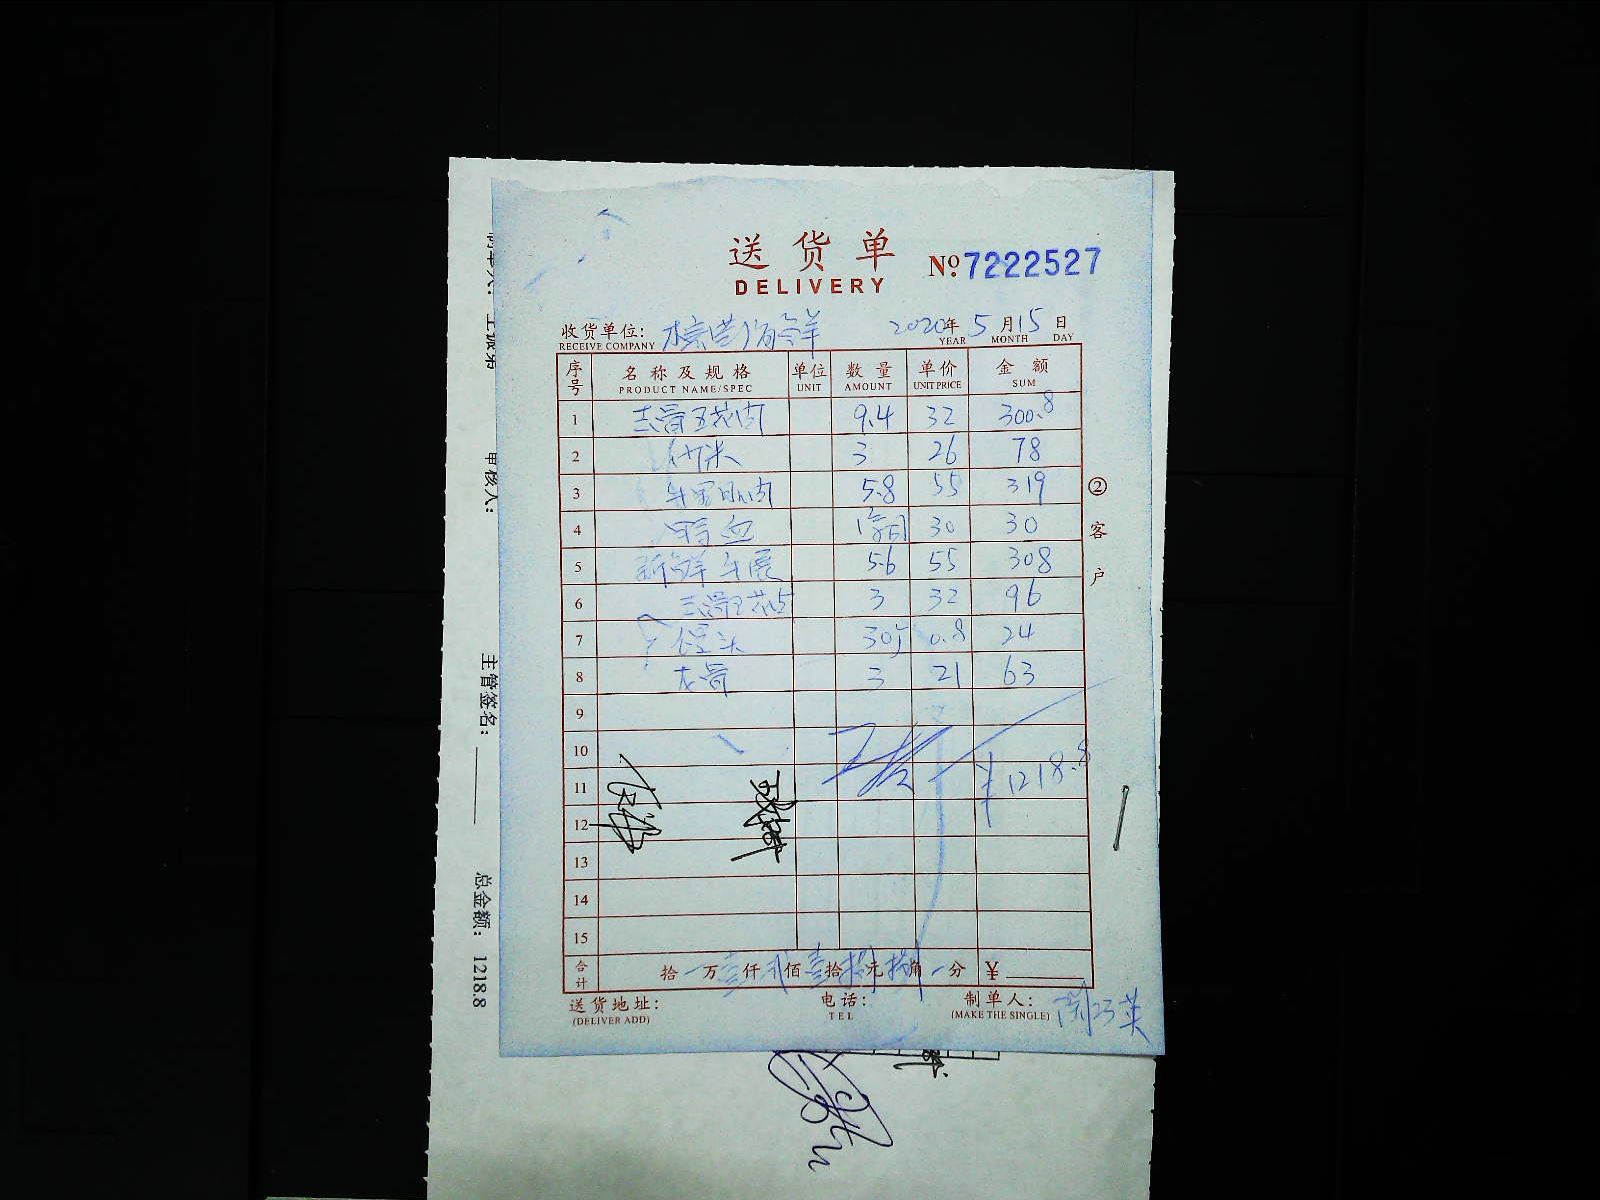 送货单 №7222527
DELIVERY
收货单位: 2020年5月15日
RECEIVE COMPANY YEAR MONTH DAY
序号 名称及规格 单位 数量 单价 金额
PRODUCT NAME/SPEC UNIT AMOUNT UNIT PRICE SUM
1 去骨五花肉 9.4 32 300.8
2 3 26 78
3 5.8 55 319
4 鸭血 30 30
5 新鲜牛展 5.6 55 308
6 去骨五花肉 3 32 96
7 馒头 30个 0.8 24
8 龙骨 3 21 63
9
10
11 ¥1218.8
12
13
14
15
合计 拾一万壹仟贰佰壹拾捌元捌角一分 ¥
送货地址: 电话: 制单人:
(DELIVER ADD) TEL (MAKE THE SINGLE)
②客户
审核人:
主管签名:
总金额: 1218.8